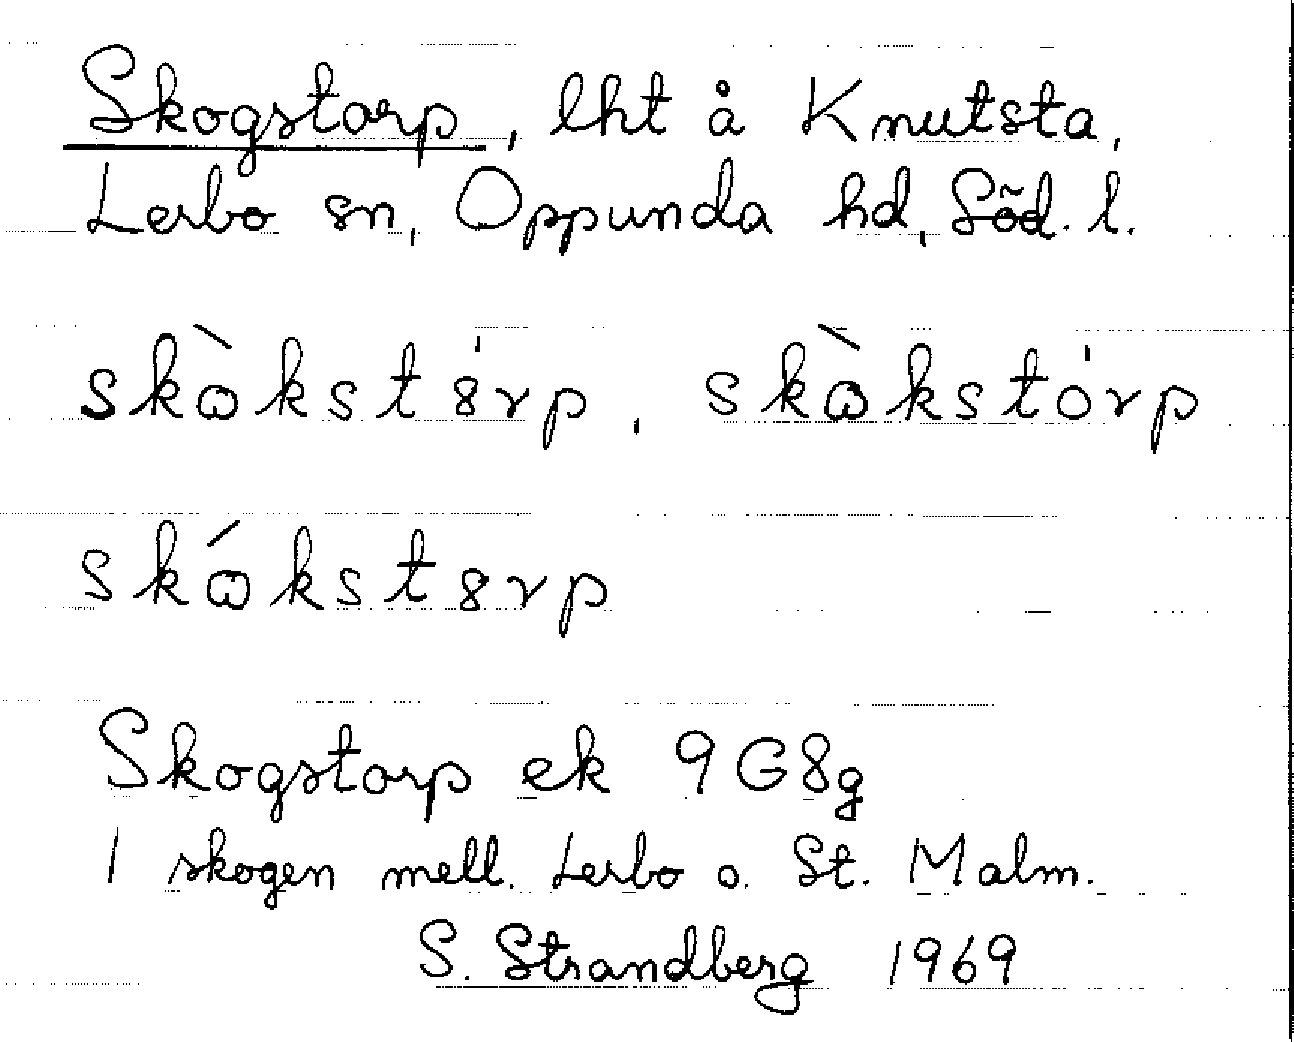 Skogstorp, lht å Knutsta,
Lerbo sn, Oppunda hd, Söd. l.
skὼkst8́rp, skὼkstórp
skώkst8rp
Skogstorp ek 9G8g
I skogen mell. Lerbo o. St. Malm.
S. Strandberg 1969